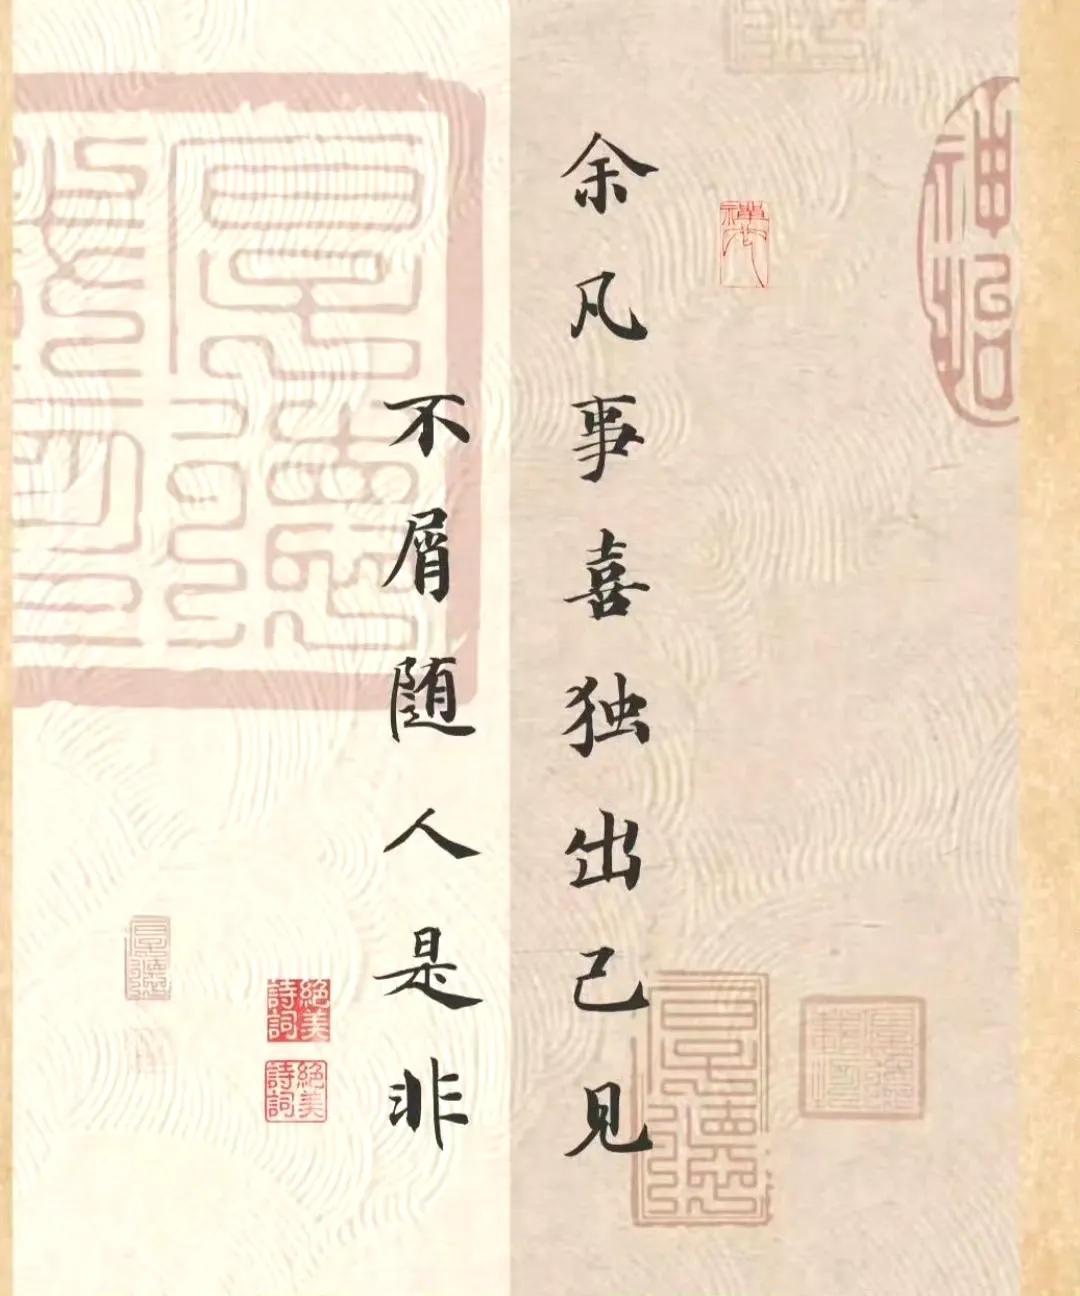 余凡事喜独出己见
不屑随人是非
絕美
詩詞
絕美
詩詞